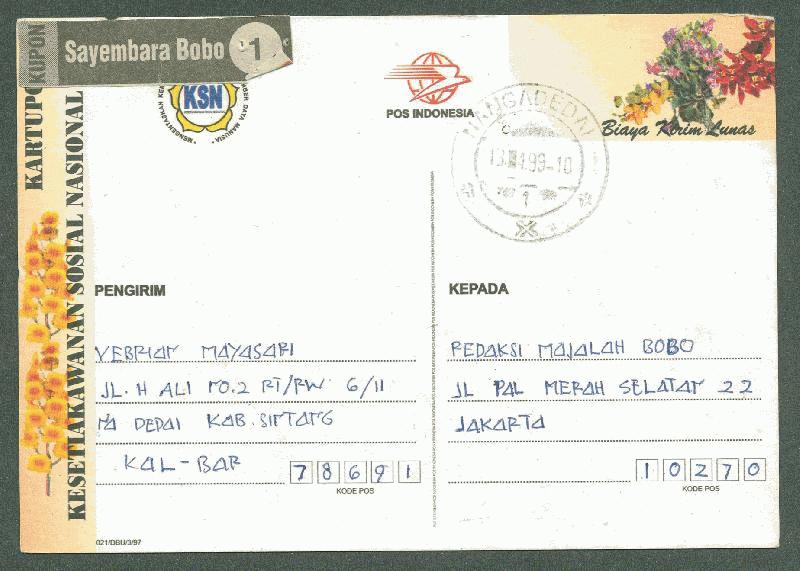 KUPON
Sayembara Bobo 1
KARTUPO
KESETIAKAWANAN SOSIAL NASIONAL
KSN
POS INDONESIA
Biaya Kirim Lunas
NANGADEDAI
99-10
1
PENGIRIM
VEBRIAN MAYASARI
JL. H ALI NO.2 RT/RW 6/11
NA DEDAI KAB. SINTANG
KAL-BAR
78691
KODE POS
KEPADA
REDAKSI MAJALAH BOBO
JL PAL MERAH SELATAN 22
JAKARTA
10270
KODE POS
021/DBU/3/97